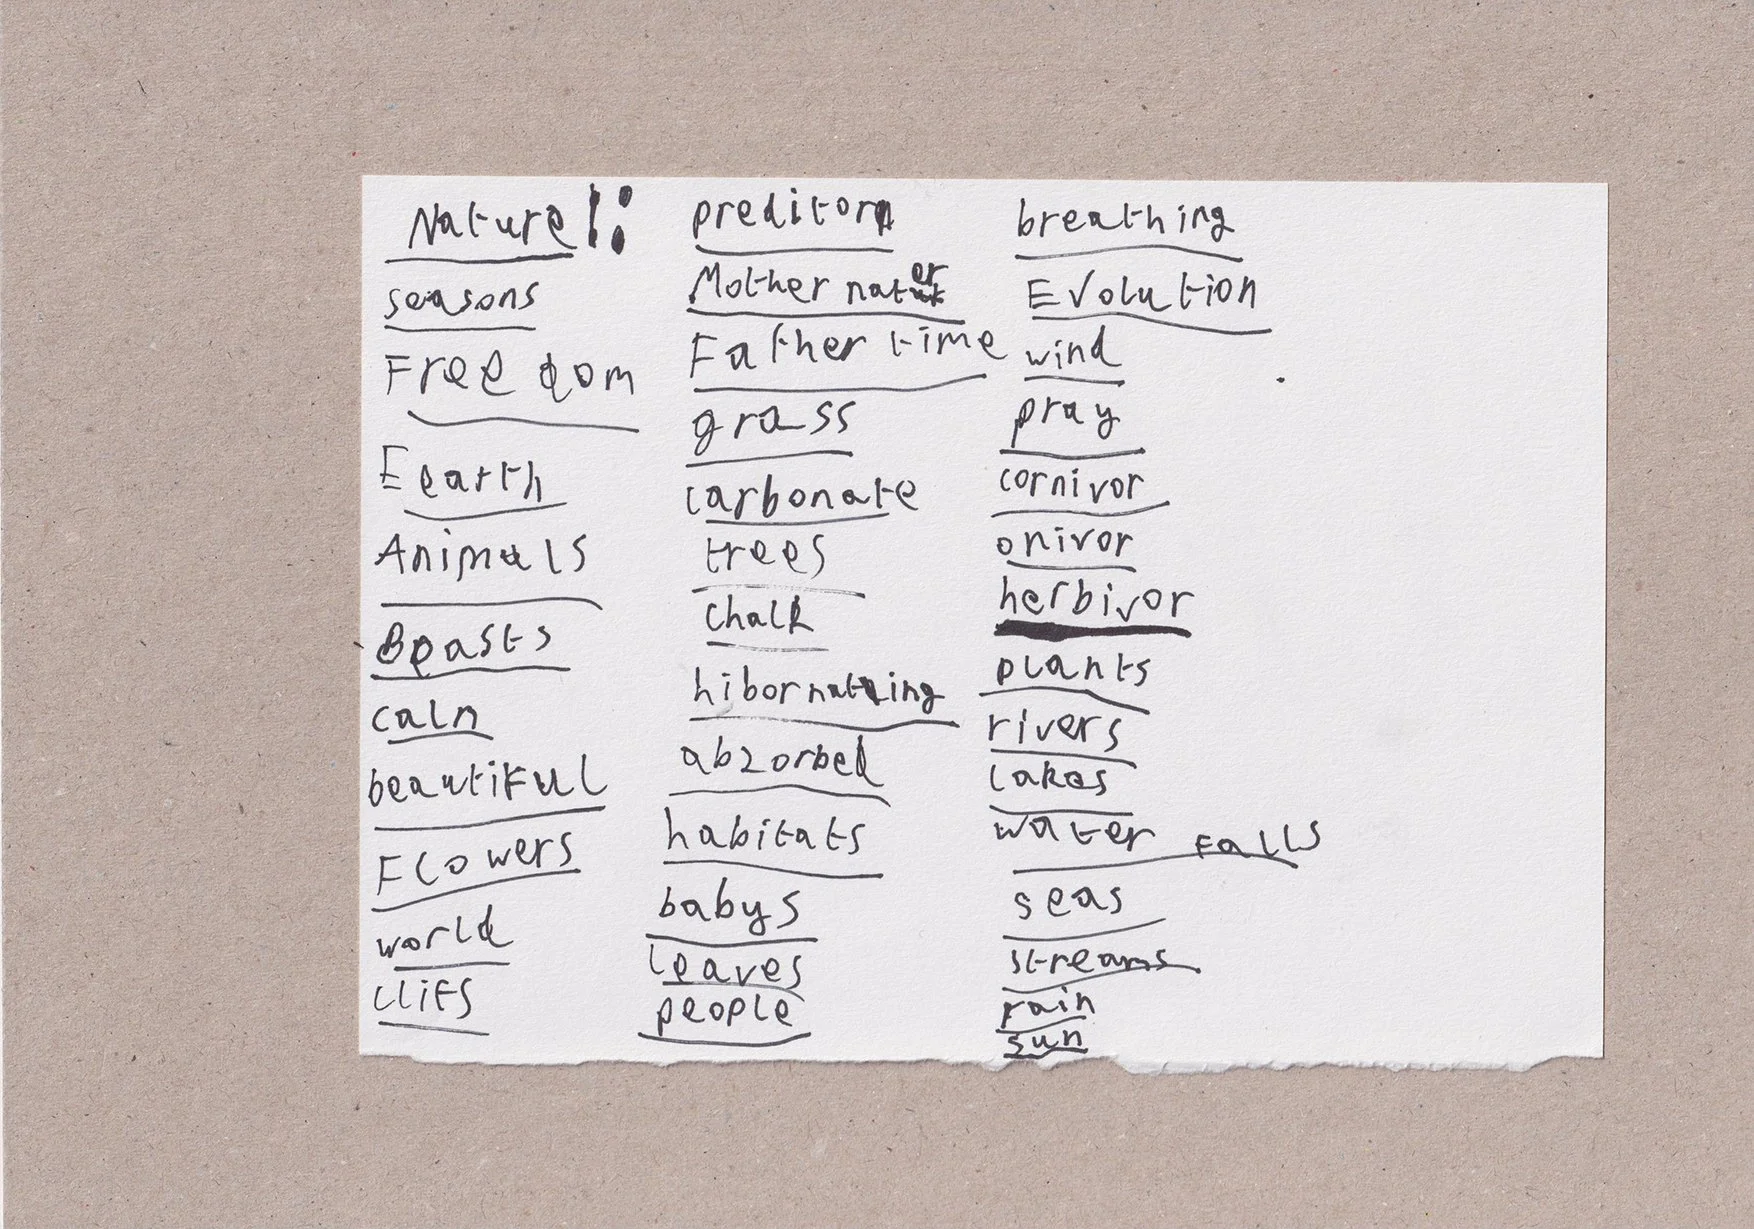 Nature!:
seasons
Freedom
Eearth
Animals
Beasts
caln
beautiful
Flowers
world
clifs
preditor
Mother nater
Father time
grass
carbonate
trees
chalk
hibornating
abzorbed
habitats
babys
leaves
people
breathing
Evolution
wind
pray
cornivor
onivor
herbivor
plants
rivers
lakes
water falls
seas
streams
rain
sun